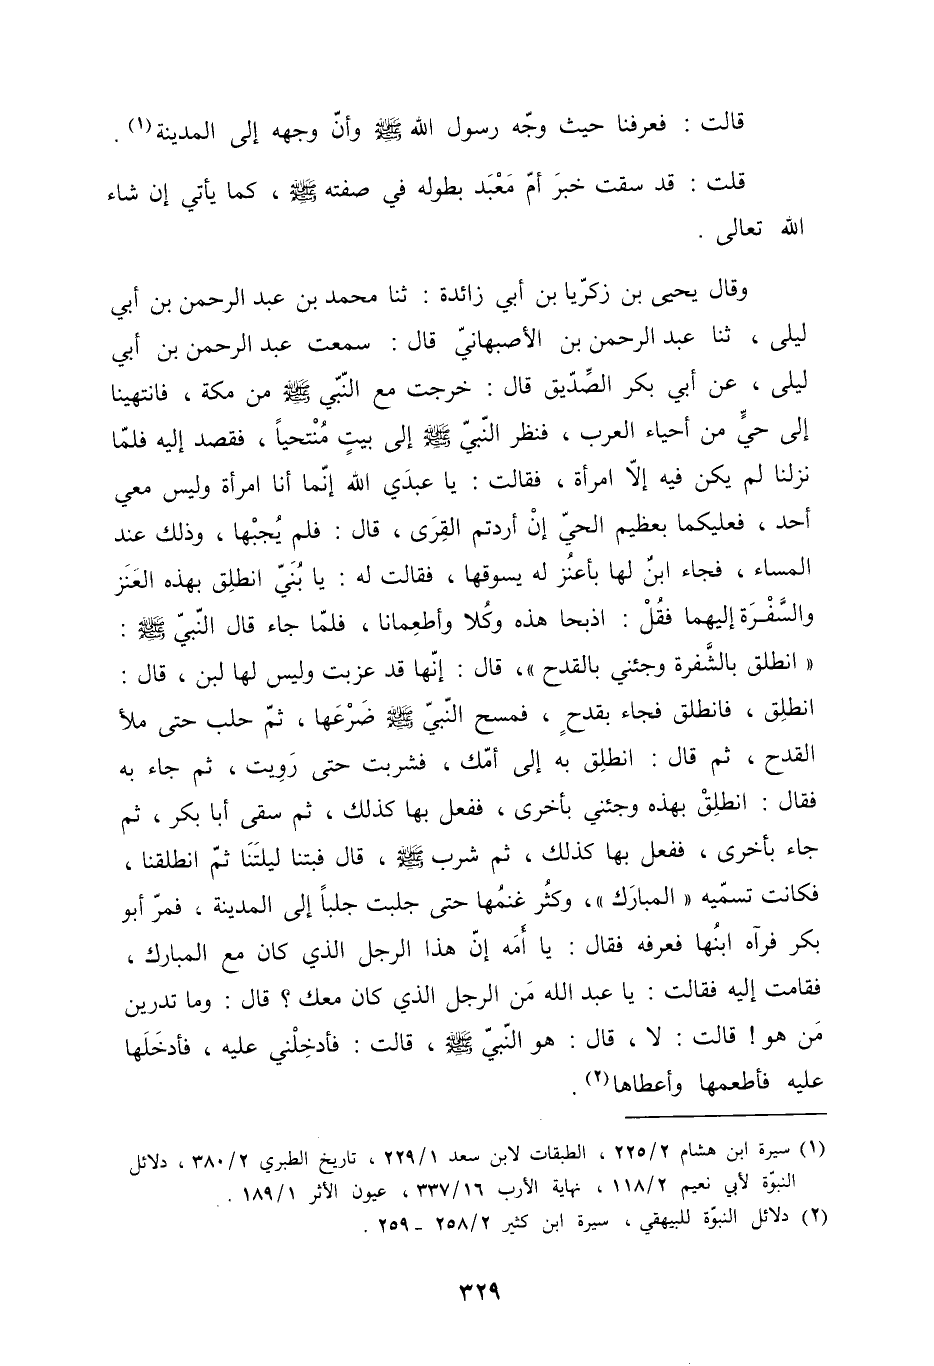 قالت : فعرفنا حيث وجّه رسول الله ﷺ وأنّ وجهه إلى المدينة(١) .
قلت : قد سقت خبرَ أمّ مَعْبَد بطوله في صفته ﷺ ، كما يأتي إن شاء
الله تعالى .
وقال يحيى بن زكريّا بن أبي زائدة : ثنا محمد بن عبد الرحمن بن أبي
ليلى ، ثنا عبد الرحمن بن الأصبهانيّ قال : سمعت عبد الرحمن بن أبي
ليلى ، عن أبي بكر الصِّدّيق قال : خرجت مع النّبّي ﷺ من مكة ، فانتهينا
إلى حيٍّ من أحياء العرب ، فنظر النّبيّ ﷺ إلى بيتٍ مُنْتحياً ، فقصد إليه فلمّا
نزلنا لم يكن فيه إلاّ امرأة ، فقالت : يا عبدَي الله إنّما أنا امرأة وليس معي
أحد ، فعليكما بعظيم الحيّ إنْ أردتم القِرَى ، قال : فلم يُجبْها ، وذلك عند
المساء ، فجاء ابنٌ لها بأعنُز له يسوقها ، فقالت له : يا بُنَيّ انطلِق بهذه العَنَز
والشَّفْرَة إليهما فقُلْ : اذبحا هذه وكُلا وأطعِمانا ، فلمّا جاء قال النّبيّ ﷺ :
« انطلق بالشَّفرة وجئني بالقدح »، قال : إنّها قد عزبت وليس لها لبن ، قال :
انطلِق ، فانطلق فجاء بقدحٍ ، فمسح النّبيّ ﷺ ضَرْعَها ، ثمّ حلب حتى ملأ
القدح ، ثم قال : انطلِق به إلى أمّك ، فشربت حتى رَوِيت ، ثم جاء به
فقال : انطلِقْ بهذه وجئني بأخرى ، ففعل بها كذلك ، ثم سقى أبا بكر ، ثم
جاء بأخرى ، ففعل بها كذلك ، ثم شرب ﷺ ، قال فبتنا ليلتَنَا ثمّ انطلقنا ،
فكانت تسمّيه « المبارك »، وكثُر غنمُها حتى جلبت جلباً إلى المدينة ، فمرّ أبو
بكر فرآه ابنُها فعرفه فقال : يا أُمَه إنّ هذا الرجل الذي كان مع المبارك ،
فقامت إليه فقالت : يا عبد الله مَن الرجل الذي كان معك ؟ قال : وما تدرين
مَن هو ! قالت : لا ، قال : هو النّبيّ ﷺ ، قالت : فأدخِلْني عليه ، فأدخَلَها
عليه فأطعمها وأعطاها(٢) .
(١) سيرة ابن هشام ٢٢٥/٢ ، الطبقات لابن سعد ٢٢٩/١ ، تاريخ الطبري ٣٨٠/٢ ، دلائل
النبوّة لأبي نعيم ١١٨/٢ ، نهاية الأرب ٣٣٧/١٦ ، عيون الأثر ١٨٩/١ .
(٢) دلائل النبوّة للبيهقي ، سيرة ابن كثير ٢٥٨/٢ - ٢٥٩ .
٣٢٩